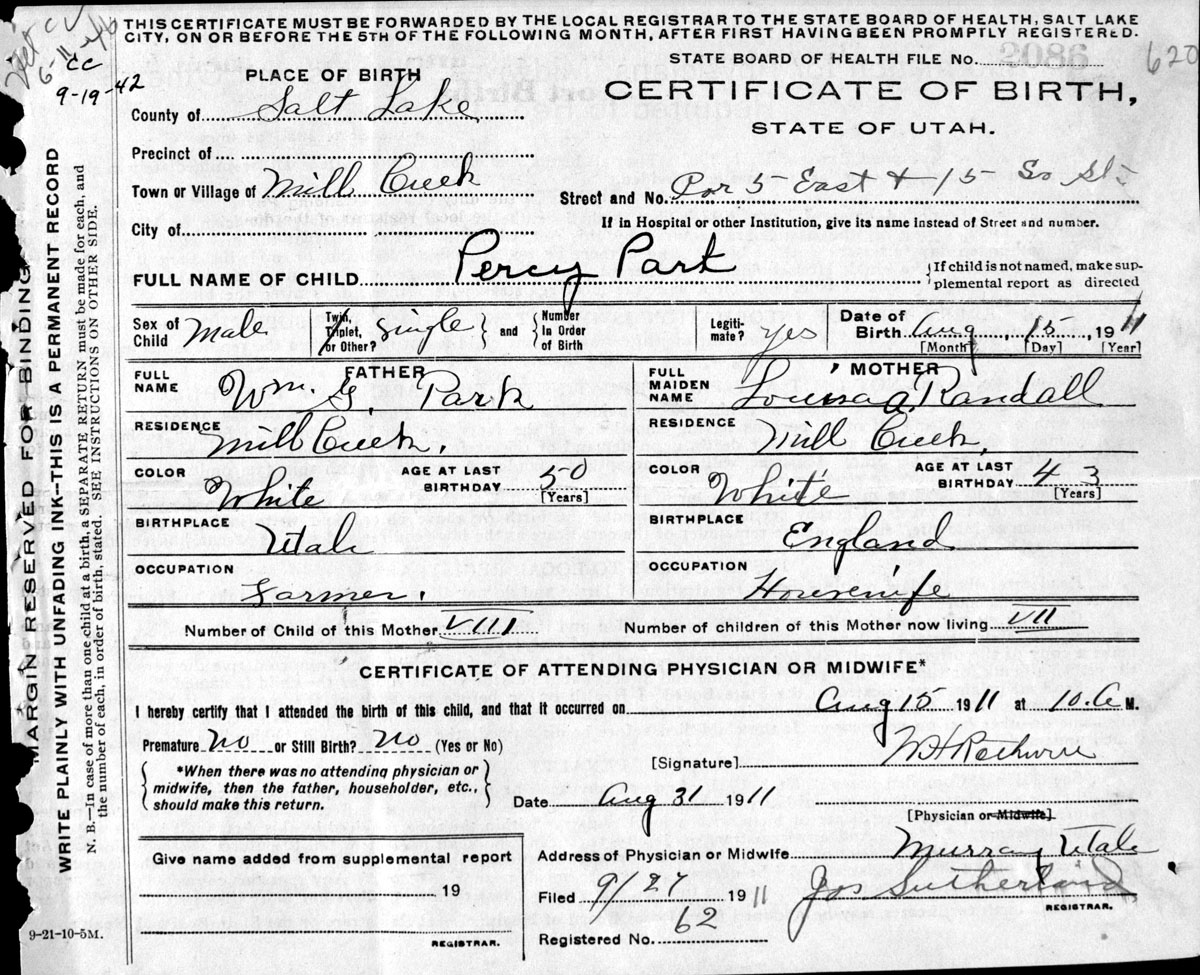 THIS CERTIFICATE MUST BE FORWARDED BY THE LOCAL REGISTRAR TO THE STATE BOARD OF HEALTH, SALT LAKE
CITY, ON OR BEFORE THE 5TH OF THE FOLLOWING MONTH, AFTER FIRST HAVING BEEN PROMPTLY REGISTERED.
6-11-46
CC
9-19-42
STATE BOARD OF HEALTH FILE No.
620
CERTIFICATE OF BIRTH,
STATE OF UTAH.
PLACE OF BIRTH
County of Salt Lake
Precinct of
Town or Village of Mill Creek
Street and No. Por 5 East + 15 So St.
City of
If in Hospital or other Institution, give its name instead of Street and number.
FULL NAME OF CHILD Percy Park
If child is not named, make sup-
plemental report as directed
Sex of Child Male
Twin, Triplet, or Other? Single and Number In Order of Birth
Legiti-mate? yes
Date of Birth Aug 15, 1911
[Month] [Day] [Year]
FATHER
FULL NAME Wm. G. Park
RESIDENCE Mill Creek.
COLOR White AGE AT LAST BIRTHDAY 50 [Years]
BIRTHPLACE Utah
OCCUPATION Farmer.
MOTHER
FULL MAIDEN NAME Louisa A. Randall
RESIDENCE Mill Creek,
COLOR White AGE AT LAST BIRTHDAY 43 [Years]
BIRTHPLACE England
OCCUPATION Housewife
Number of Child of this Mother VIII Number of children of this Mother now living VII
CERTIFICATE OF ATTENDING PHYSICIAN OR MIDWIFE*
I hereby certify that I attended the birth of this child, and that it occurred on Aug 15 1911 at 10. A M.
Premature No or Still Birth? No (Yes or No)
*When there was no attending physician or
midwife, then the father, householder, etc.,
should make this return.
[Signature]
Date Aug 31 1911
[Physician or Midwife]
Give name added from supplemental report
19
REGISTRAR.
Address of Physician or Midwife Murray Utah
Filed 9/27 1911 Jos Sutherland
REGISTRAR.
Registered No. 62
9-21-10-5M.
MARGIN RESERVED FOR BINDING
WRITE PLAINLY WITH UNFADING INK—THIS IS A PERMANENT RECORD
N. B.—In case of more than one child at a birth, SEPARATE RETURN must be made for each, and
the number of each, in order of birth, stated. SEE INSTRUCTIONS ON OTHER SIDE.